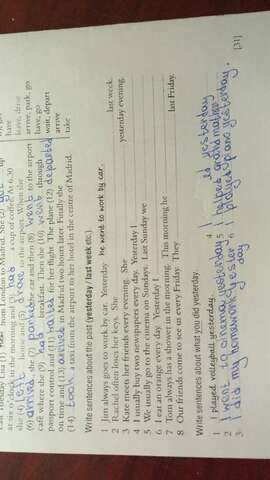 have
leave, drive
arrive, park, go
have, go
wait, depart
arrive
take
at six o'clock in the morning and had a cup of coffee. At 6.30
she (4) left home and (5) drove to the airport. When she
(6) arrived she (7) parked the car and then (8) went to the airport
café where she (9) had breakfast. Then she (10) went through
passport control and (11) waited for her flight. The plane (12) departed
on time and (13) arrived in Madrid two hours later. Finally she
(14) took a taxi from the airport to her hotel in the centre of Madrid.
Write sentences about the past (yesterday / last week etc.).
1 Jim always goes to work by car. Yesterday he went to work by car.
2 Rachel often loses her keys. She last week.
3 Kate meets her friends every evening. She yesterday evening.
4 I usually buy two newspapers every day. Yesterday I
5 We usually go to the cinema on Sundays. Last Sunday we
6 I eat an orange every day. Yesterday I
7 Tom always has a shower in the morning. This morning he
8 Our friends come to see us every Friday. They last Friday.
Write sentences about what you did yesterday.
1 I played volleyball yesterday.
2 I went to cinema yesterday
3 I did my homework yesterday
4 yesterday
5 I helped grandmother
6 I played piano yesterday.
[31]